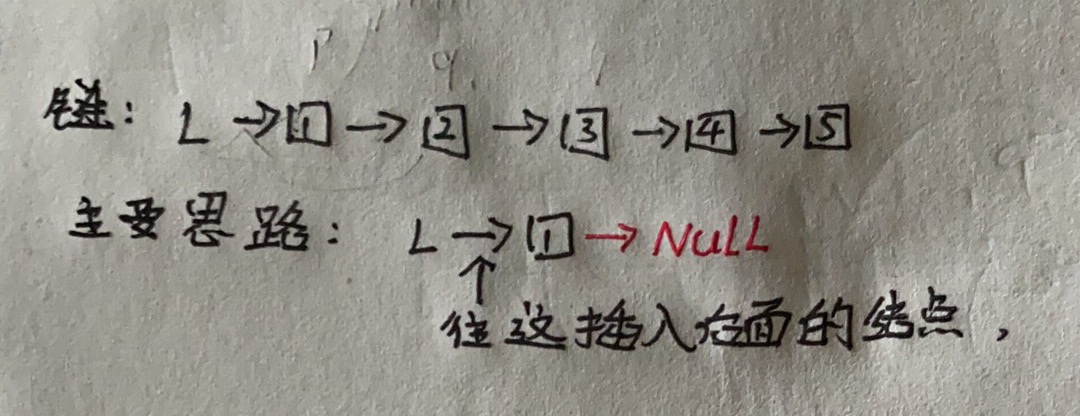 p q
链: L → 1 → 2 → 3 → 4 → 5
主要思路: L → 1 → NULL
↑
往这插入后面的结点,